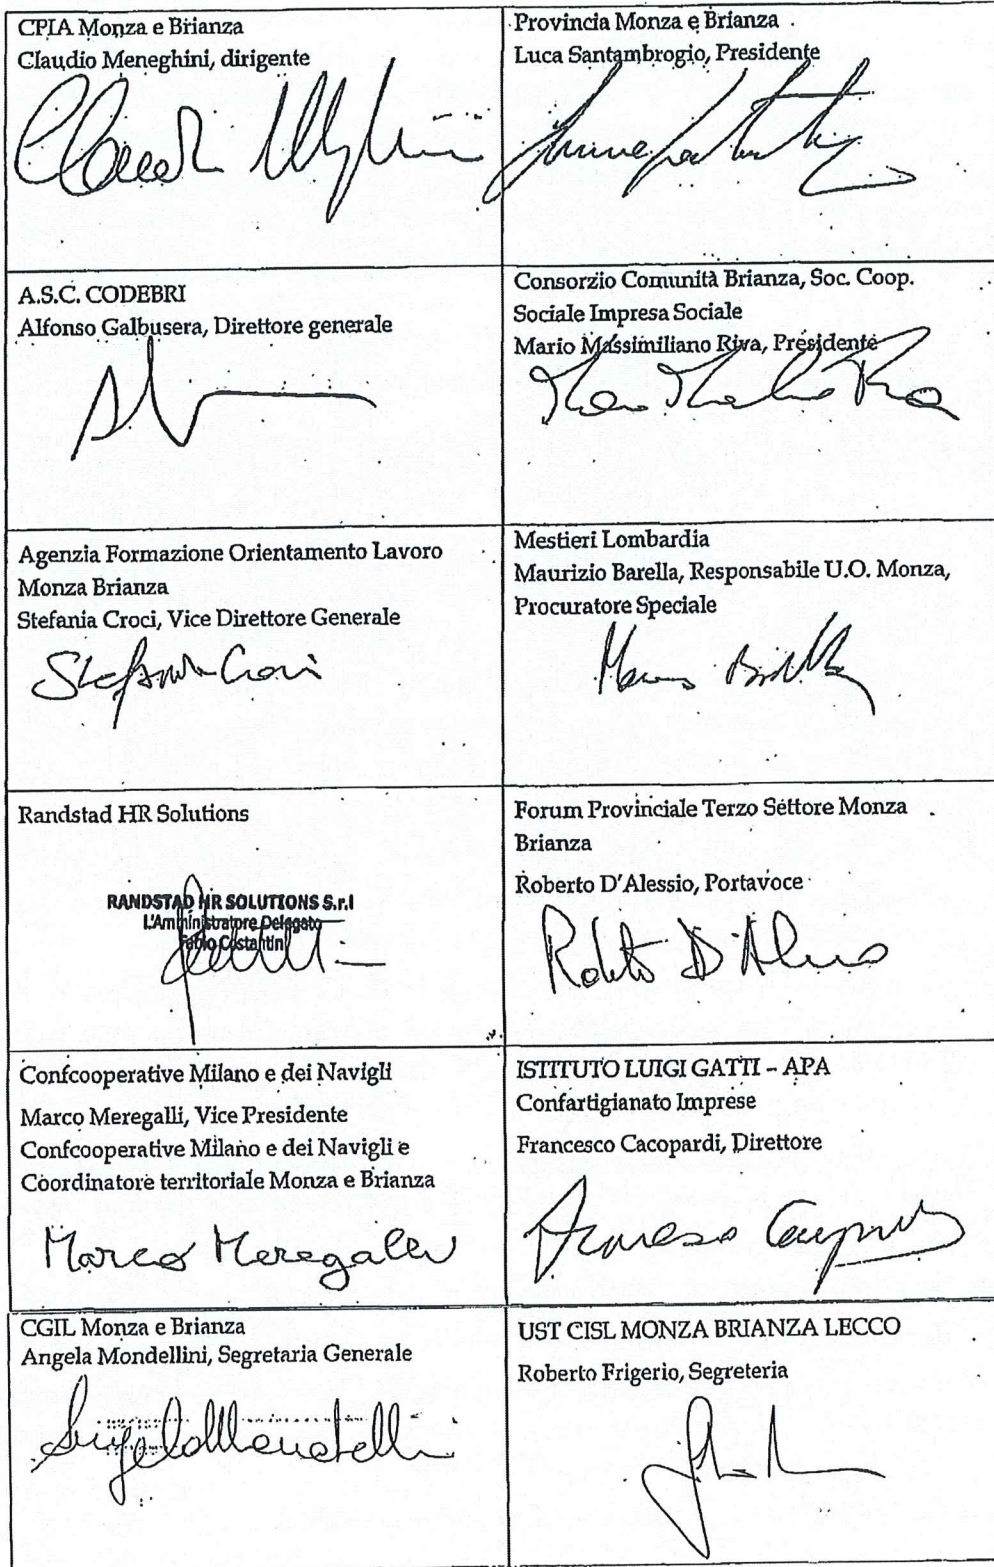 CPIA Monza e Brianza
Claudio Meneghini, dirigente
Provincia Monza e Brianza
Luca Santambrogio, Presidente
A.S.C. CODEBRI
Alfonso Galbusera, Direttore generale
Consorzio Comunità Brianza, Soc. Coop.
Sociale Impresa Sociale
Mario Massimiliano Riva, Presidente
Agenzia Formazione Orientamento Lavoro
Monza Brianza
Stefania Croci, Vice Direttore Generale
Stefania Croci
Mestieri Lombardia
Maurizio Barella, Responsabile U.O. Monza,
Procuratore Speciale
Randstad HR Solutions
RANDSTAD HR SOLUTIONS S.r.l
L'Amministratore Delegato
Fabio Costantini
Forum Provinciale Terzo Settore Monza
Brianza
Roberto D'Alessio, Portavoce
Confcooperative Milano e dei Navigli
Marco Meregalli, Vice Presidente
Confcooperative Milano e dei Navigli e
Coordinatore territoriale Monza e Brianza
Marco Meregalli
ISTITUTO LUIGI GATTI – APA
Confartigianato Imprese
Francesco Cacopardi, Direttore
CGIL Monza e Brianza
Angela Mondellini, Segretaria Generale
UST CISL MONZA BRIANZA LECCO
Roberto Frigerio, Segreteria